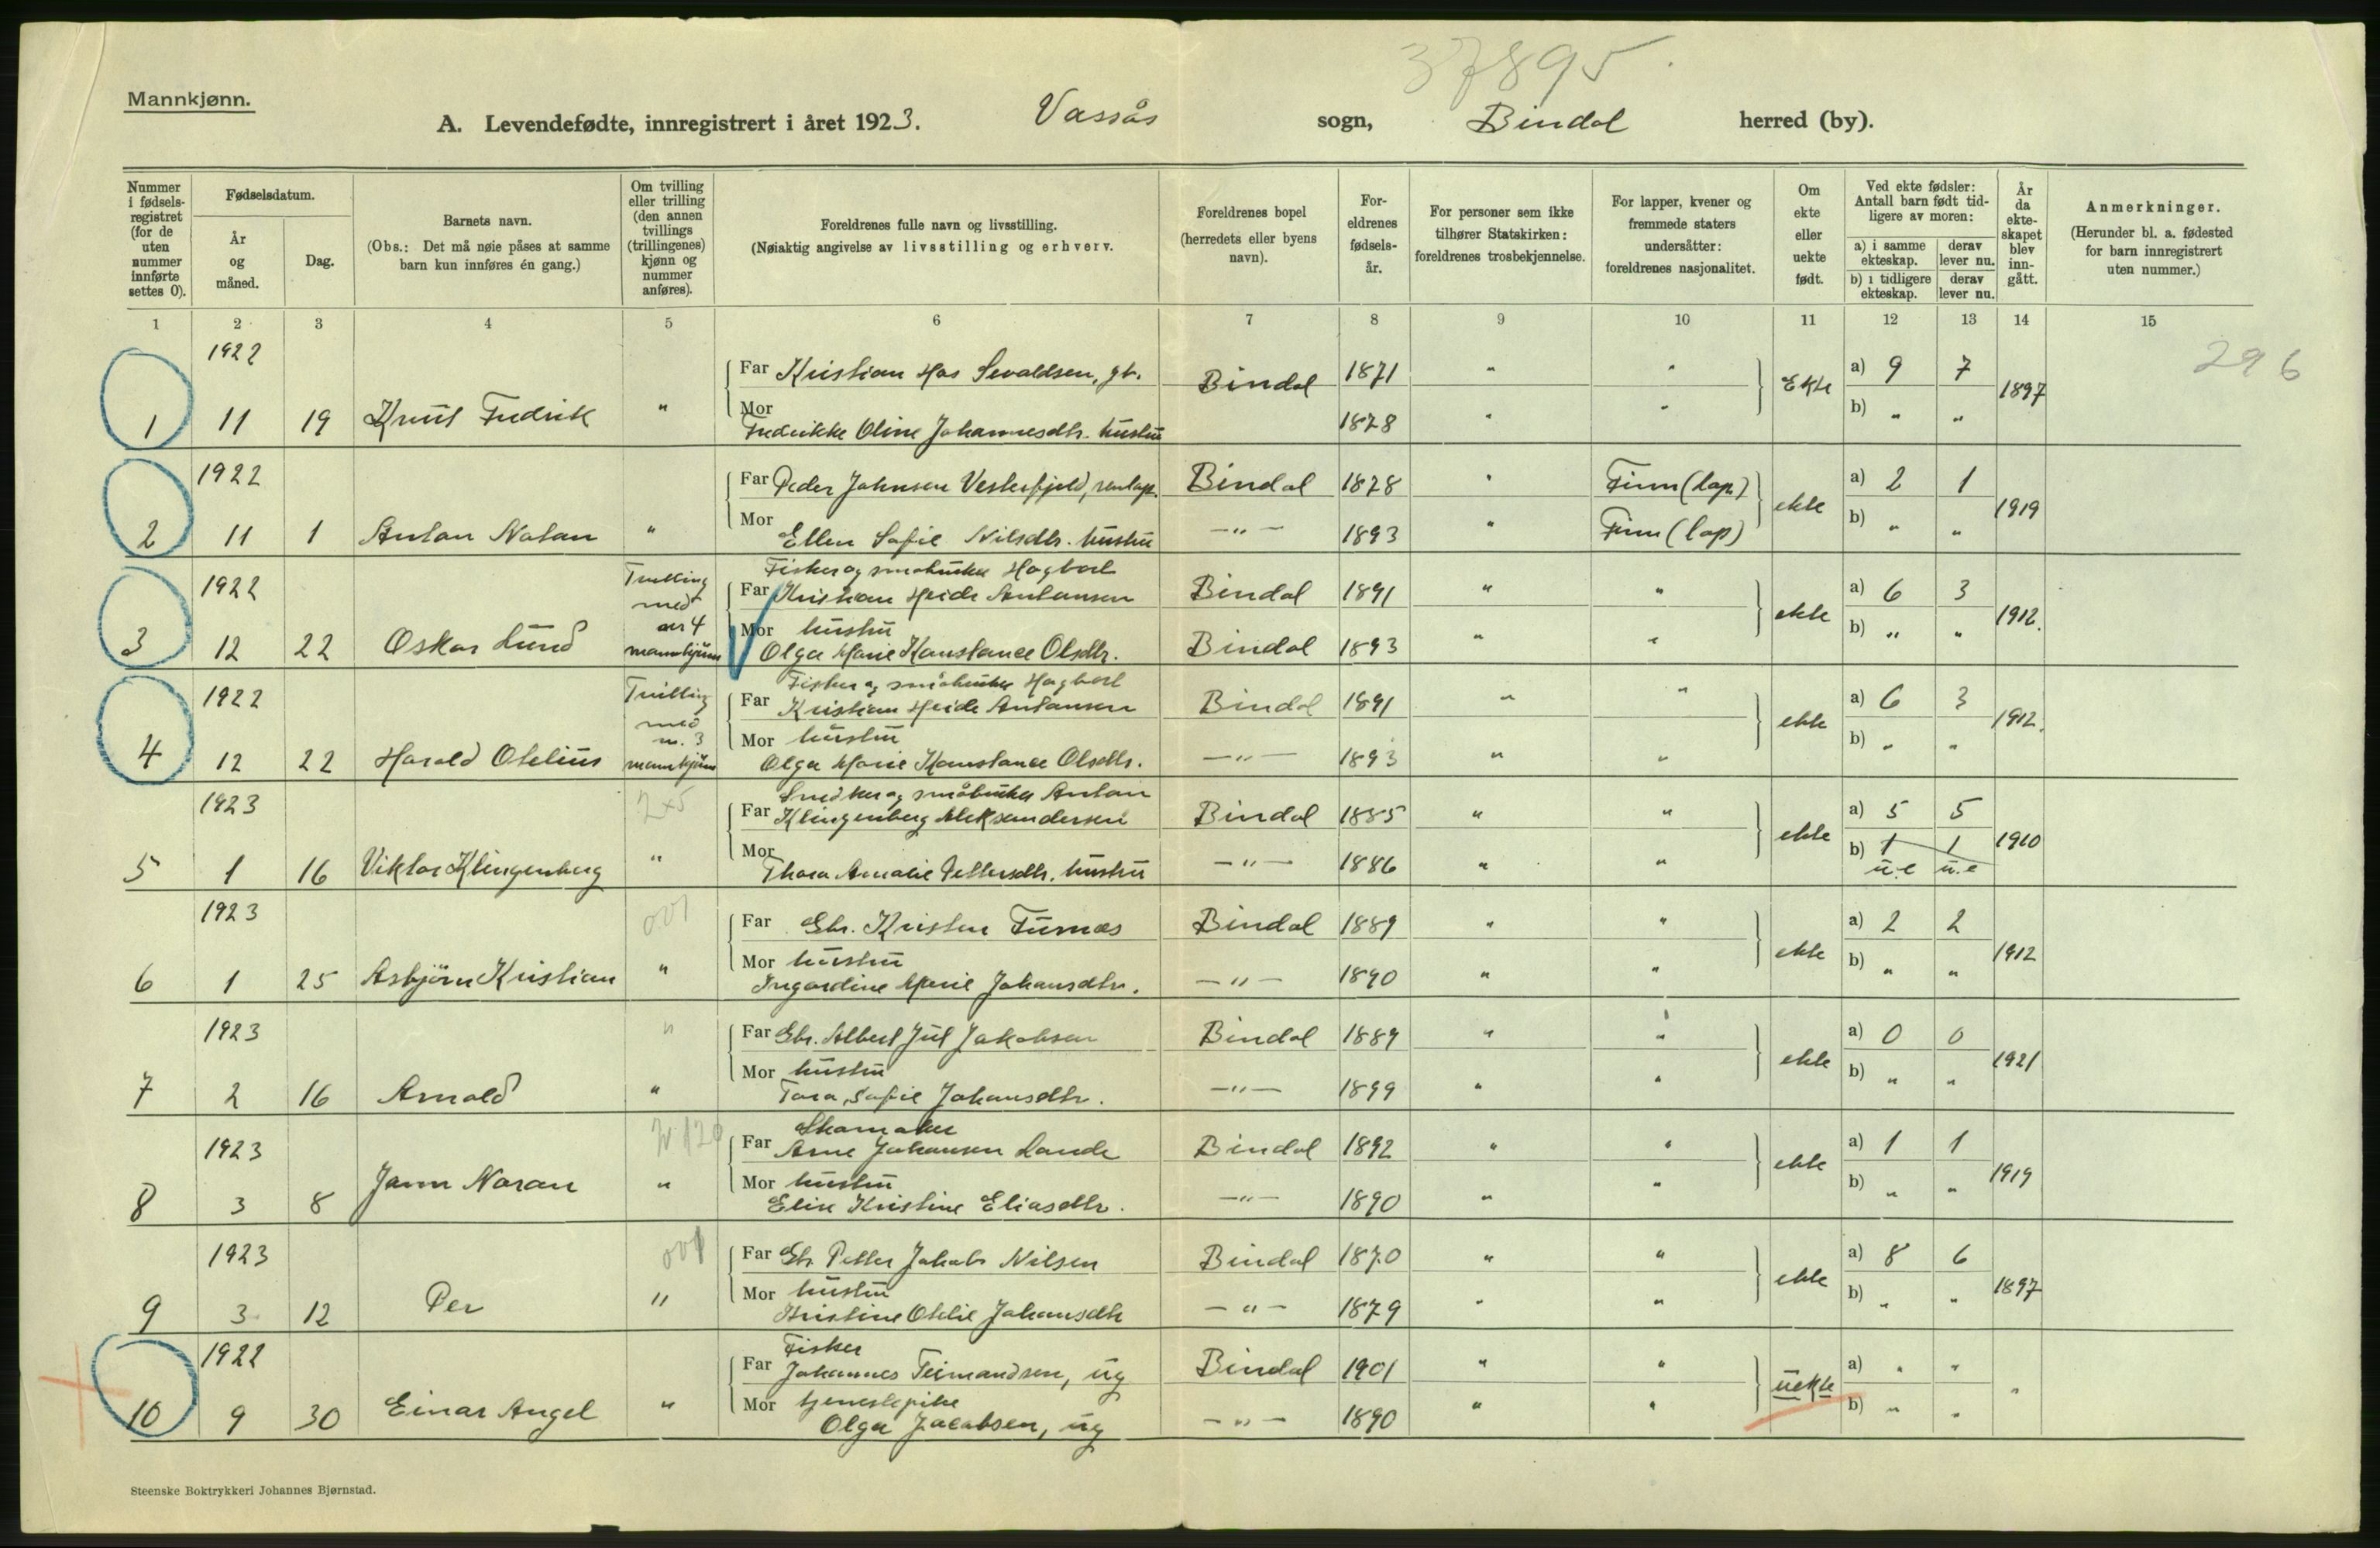 37895
Mannkjønn.
A. Levendefødte, innregistrert i året 1923. Vassås sogn, Bindal herred (by).
Nummer i fødsels-registret (for de uten nummer innførte settes 0).
Fødselsdatum.
År og måned.
Dag.
Barnets navn.
(Obs.: Det må nøie påses at samme barn kun innføres én gang.)
Om tvilling eller trilling (den annen tvillings (trillingenes) kjønn og nummer anføres).
Foreldrenes fulle navn og livsstilling.
(Nøiaktig angivelse av livsstilling og erhverv.
Foreldrenes bopel (herredets eller byens navn).
For-eldrenes fødsels-år.
For personer som ikke tilhører Statskirken: foreldrenes trosbekjennelse.
For lapper, kvener og fremmede staters undersåtter: foreldrenes nasjonalitet.
Om ekte eller uekte født.
Ved ekte fødsler: Antall barn født tid-ligere av moren:
a) i samme ekteskap.
derav lever nu.
b) i tidligere ekteskap.
derav lever nu.
År da ekte-skapet blev inn-gått.
Anmerkninger.
(Herunder bl. a. fødested for barn innregistrert uten nummer.)
1 2 3 4 5 6 7 8 9 10 11 12 13 14 15
296
1922 Far Kristian Has Sevaldsen, gb. Bindal 1871 " " Ekte a) 9 7 1897
1 11 19 Knut Fredrik " Mor " " b) " "
Fredrikke Oline Johannesdtr. hustru 1878
1922 Far Peder Johnsen Vesterfjeld, renlap. Bindal 1878 " Finn (lap) ekte a) 2 1 1919
2 11 1 Anton Natan " Mor Ellen Sofie Nilsdtr. hustru —"— 1893 " Finn (lap) b) " "
Fisker og småbruker Hagbart
1922 Tvilling med nr 4 mannkjønn Far Kristian Heide Antonsen Bindal 1891 " " ekte a) 6 3 1912.
Mor hustru
3 12 22 Oskar Lund Olga Marie Konstance Olsdtr. Bindal 1893 " " b) " "
Fisker og småbruker Hagbart
1922 Tvilling med nr. 3 mannkjønn Far Kristian Heide Antonsen Bindal 1891 " " ekte a) 6 3 1912.
Mor hustru
4 12 22 Harald Otelius Olga Marie Konstance Olsdtr. —"— 1893 " " b) " "
Snedker og småbruker Anton
1923 2x5 Far Klingenberg Aleksandersen Bindal 1885 " " ekte a) 5 5 1910
5 1 16 Viktor Klingenberg " Mor Thora Amalie Pettersdtr. hustru —"— 1886 " " b) 1 1
u.e u.e
1923 001 Far Gbr. Kristen Furnes Bindal 1889 " " ekte a) 2 2 1912
Mor hustru
6 1 25 Asbjörn Kristian " Ingardine Marie Johansdtr. —"— 1890 " " b) " "
1923 " Far Gbr. Albert Jul Jakobsen Bindal 1889 " " ekte a) 0 0 1921
Mor hustru
7 2 16 Arnold " Tora Sofie Johansdtr. —"— 1899 " " b) " "
Skomaker
1923 Far Arne Johansen Lande Bindal 1892 " " ekte a) 1 1 1919
Mor hustru
8 3 8 Jann Noran " Elise Kristine Eliasdtr. —"— 1890 " " b) " "
1923 001 Far Gbr Petter Jakob Nilsen Bindal 1870 " " ekte a) 8 6 1897
Mor hustru
9 3 12 Per " Kristine Otelie Johansdtr —"— 1879 " " b) " "
Fisker
1922 Far Johannes Teimandsen, ug Bindal 1901 " " uekte a) " " "
Mor tjenestepike
10 9 30 Einar Angel " Olga Jacobsen, ug —"— 1890 " " b) " "
Steenske Boktrykkeri Johannes Bjørnstad.